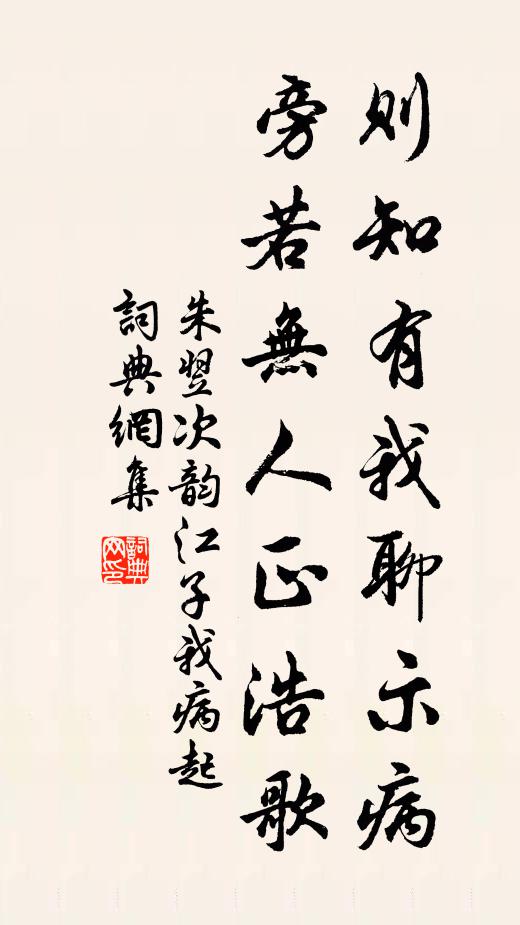 則知有我聊示病
旁若無人正浩歌
朱翌次韵江子我病起
詞典網集
詞典网印